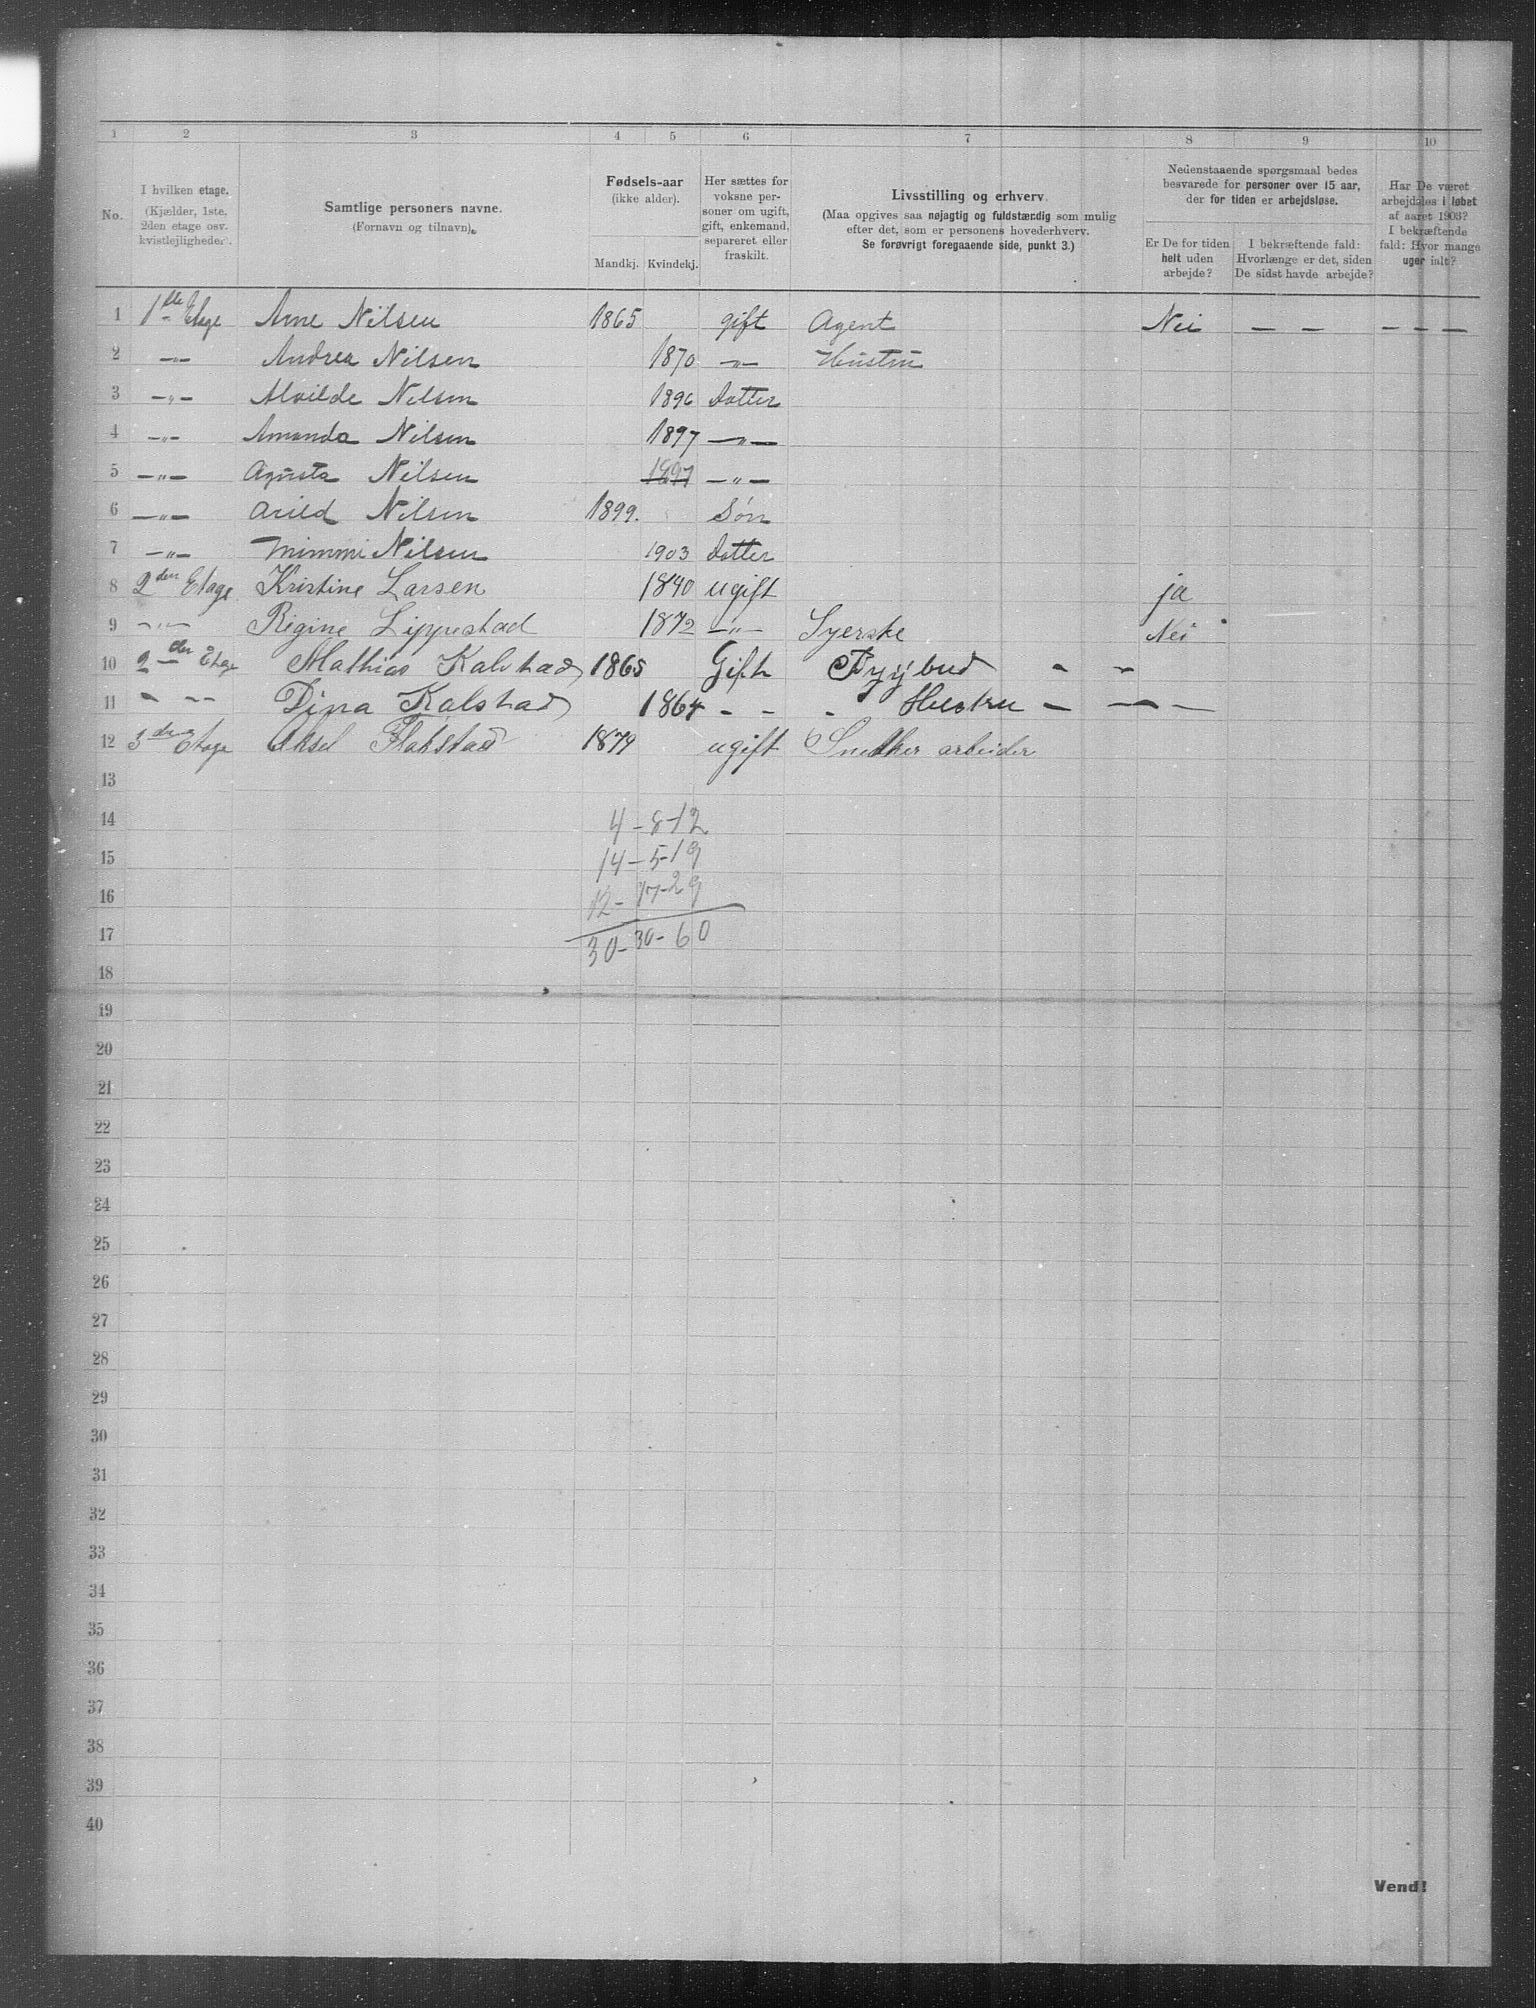 1 2 3 4 5 6 7 8 9 10
No.
I hvilken etage.
(Kjælder, 1ste,
2den etage osv.
kvistlejligheder).
Samtlige personers navne.
(Fornavn og tilnavn).
Fødsels-aar
(ikke alder).
Mandkj. Kvindekj.
Her sættes for
voksne per-
soner om ugift,
gift, enkemand,
separeret eller
fraskilt.
Livsstilling og erhverv.
(Maa opgives saa nøjagtig og fuldstændig som mulig
efter det, som er personens hovederhverv.
Se forøvrigt foregaaende side, punkt 3.)
Nedenstaaende spørgsmaal bedes
besvarede for personer over 15 aar,
der for tiden er arbejdsløse.
Er De for tiden
helt uden
arbejde?
I bekræftende fald:
Hvorlænge er det, siden
De sidst havde arbejde?
Har De været
arbejdsløs i løbet
af aaret 1903?
I bekræftende
fald: Hvor mange
uger ialt?
1 1ste Etage Arne Nilsen 1865 gift Agent Nei — — — — —
2 —"— Andrea Nilsen 1870 —"— Hustru
3 —"— Alvilde Nilsen 1896 Datter
4 —"— Amanda Nilsen 1897 —"—
5 —"— Agusta Nilsen 1897 —"—
6 —"— Arild Nilsen 1899. Søn
7 —"— Mimmi Nilsen 1903 Datter
8 2den Etage Kristine Larsen 1840 ugift ja
9 —"— Regine Lippestad 1872 —"— Syerske Nei
10 2den Etage Mathias Kalstad 1865 Gift Bybud - -
11 - -- Dina Kalstad 1864 - - - Hustru — — —
12 3die Etage Aksel Flakstad 1879 ugift Snedker arbeider
13
14 4-8-12
15 14-5-19
16 12-17-29
17 30-30-60
18
19
20
21
22
23
24
25
26
27
28
29
30
31
32
33
34
35
36
37
38
39
40
Vend!